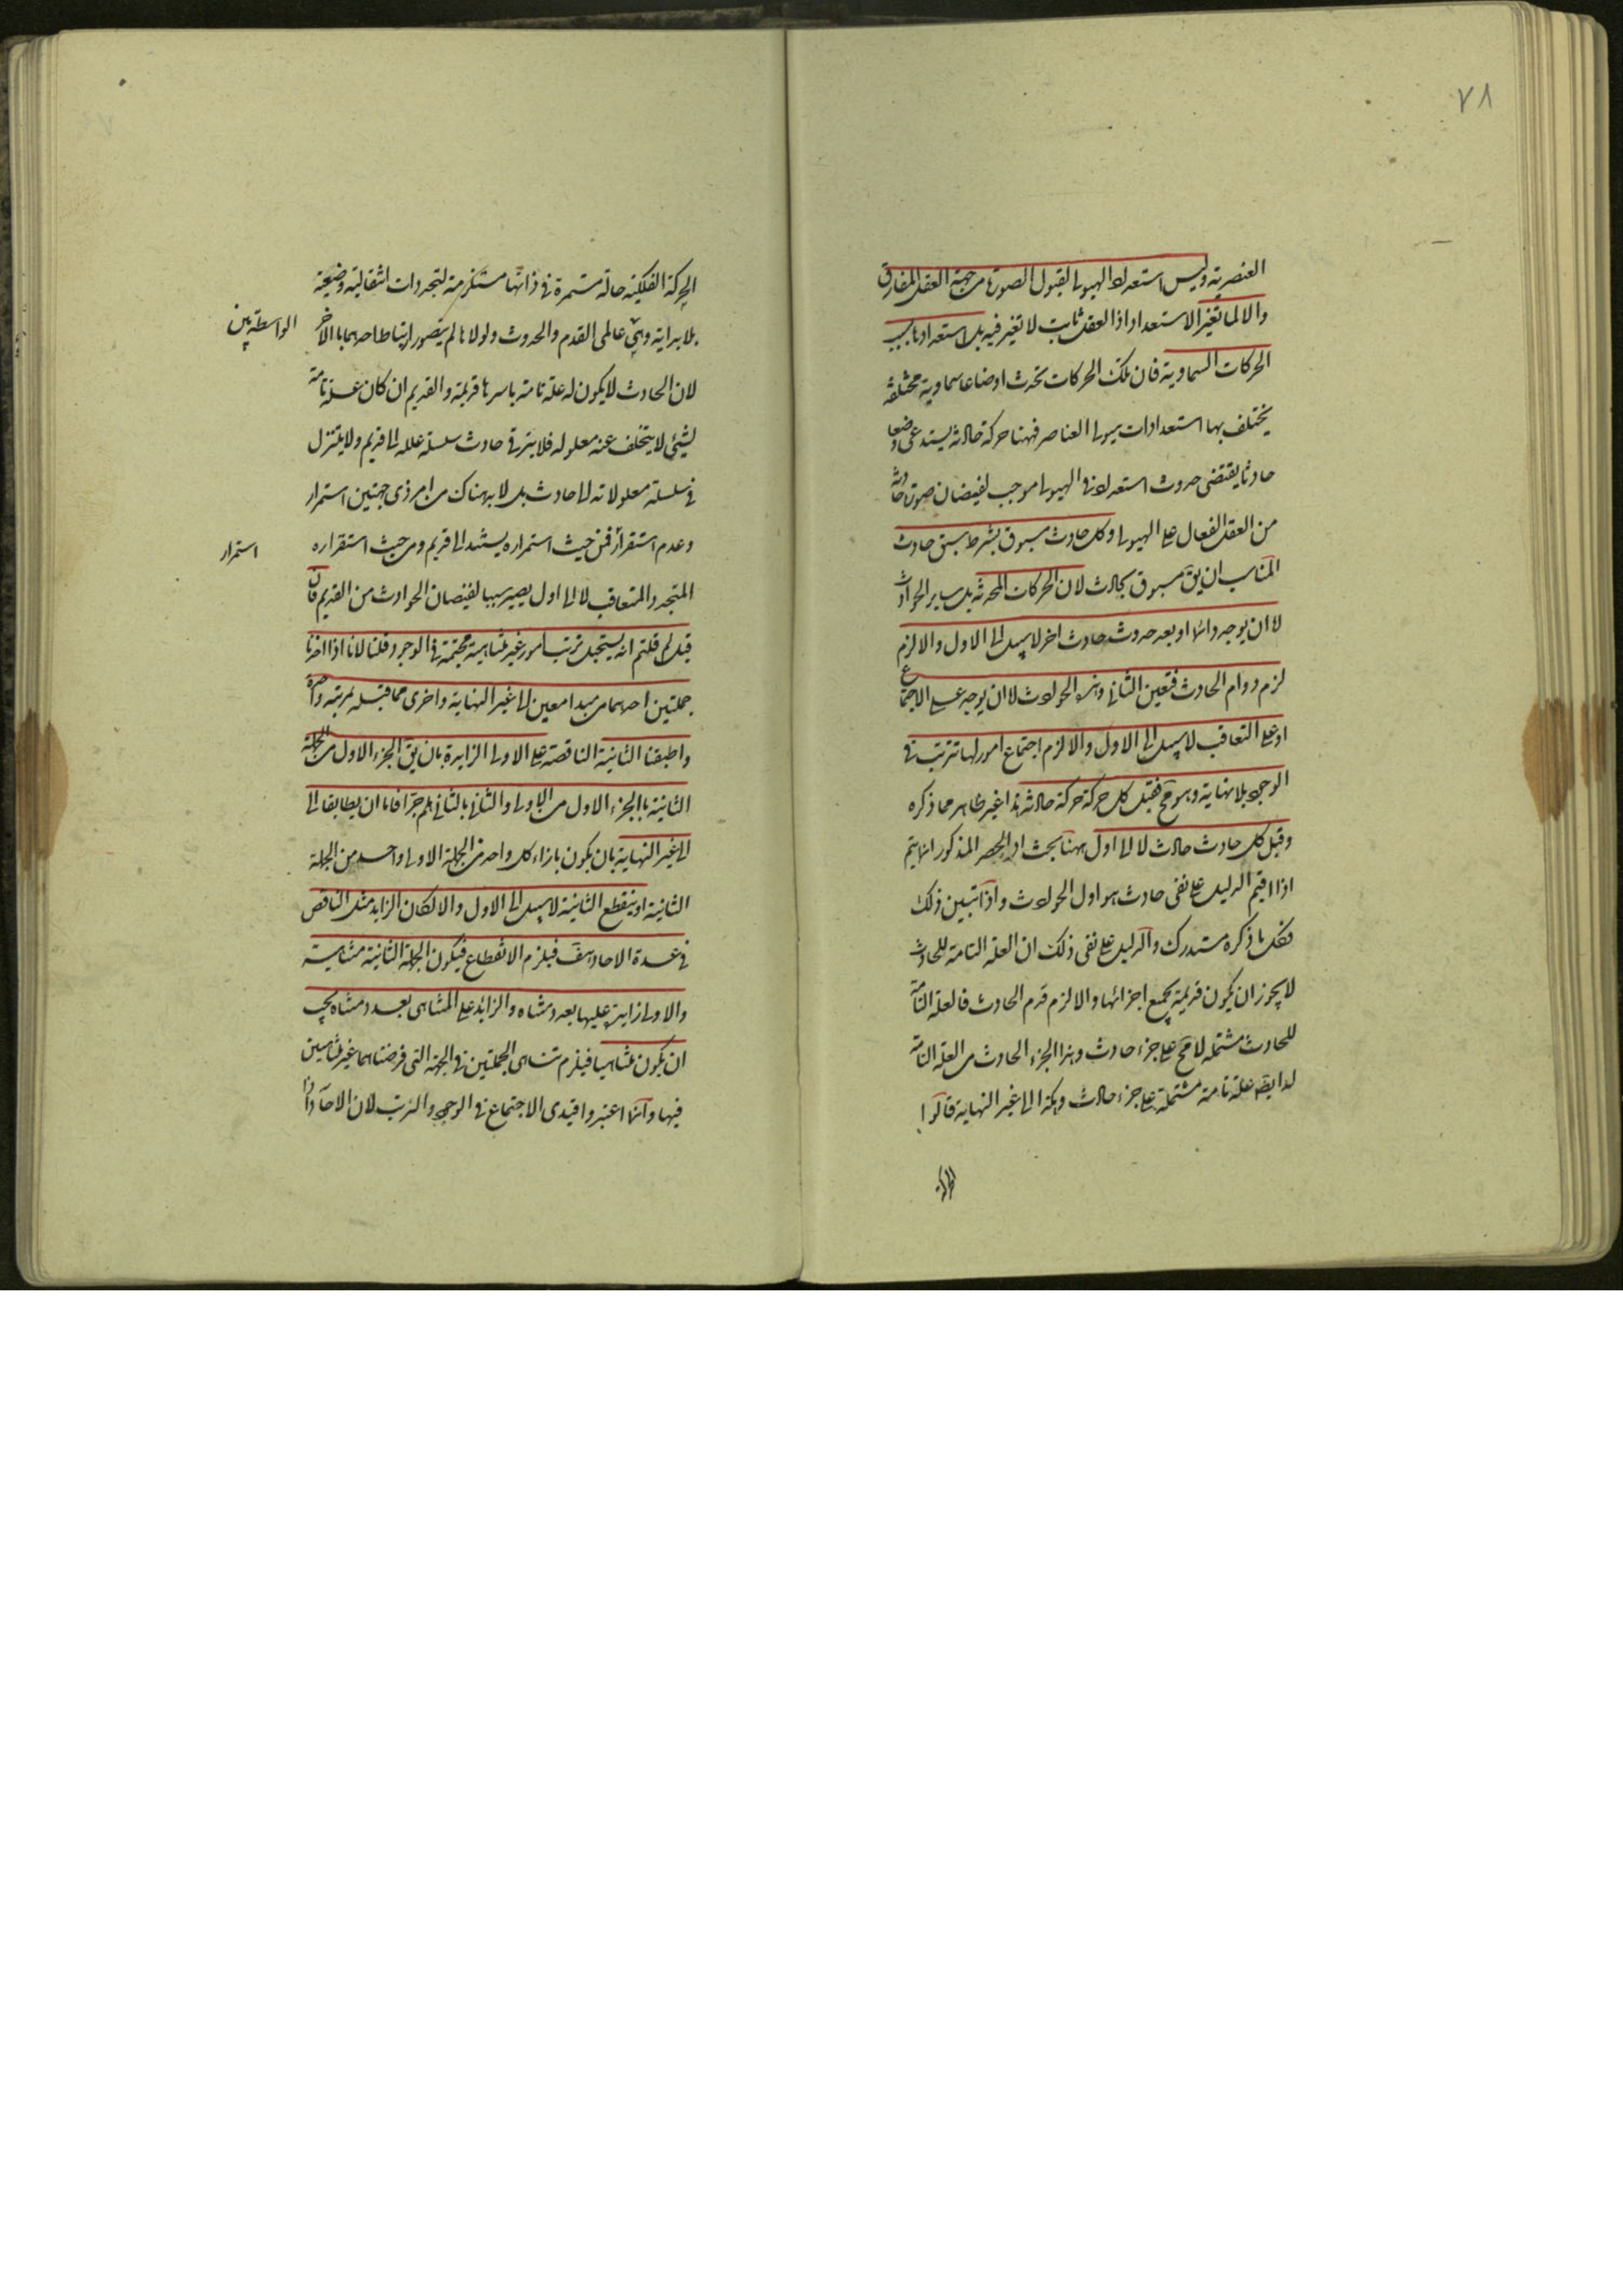 ٧٨
العنصرية وليس استعداد الهيولى لقبول الصورة من جهة العقل المفارق
والا لما تغير الاستعداد اذ العقل ثابت لا تغير فيه بل استعدادها بسبب
الحركات السماوية فان تلك الحركات تحدث اوضاعا سماوية مختلفة
يختلف بها استعدادات هيولى العناصر فههنا حركة حادثة يستدعى وضعا
حادثا يقتضى حدوث استعداد فى الهيولى موجب لفيضان صورة حادثة
من العقل الفعال على الهيولى وكل حادث مسبوق بشرط سبق حادث
المناسب ان يق مسبوق بحادث لان الحركات المحدثة بل ساير الحوادث
لا ان يوجد دائما او بعد حدوث حادث اخر لا سبيل الى الاول والا لزم
لزم دوام الحادث فتعين الثانى وهذه الحوادث لا ان يوجد على الاجتماع
او على التعاقب لا سبيل الى الاول والا لزم اجتماع امور لها ترتب فى
الوجود بلا نهاية وهو مح فقبل كل حركة حركة حادثة هذا غير ظاهر مما ذكره
وقبل كل حادث حادث لا الى اول ههنا بحث اذ الحصر المذكور انما يتم
اذا اقيم الدليل على نفى حادث هو اول الحوادث واذا تبين ذلك
فكل ما ذكره مستدرك والدليل على نفى ذلك ان العلة التامة للحادث
لا يجوز ان يكون قديمة بجميع اجزائها والا لزم قدم الحادث فالعلة التامة
للحادث مشتملة لا مح على جزء حادث وهذا الجزء الحادث من العلة التامة
له ايض علة تامة مشتملة على جزء حادث وهكذا الى غير النهاية قالوا
الحركة الفلكية حالة مستمرة فى ذاتها مستلزمة لتجددات انتقالية وضعية
بلا بداية وهى عالمى القدم والحدوث ولولاها لم يتصور ارتباط احدهما بالاخر
الواسطة بين
لان الحادث لا يكون له علة تامة باسرها قديمة والقديم ان كان علة تامة
لشيئ لا يتخلف عنه معلوله فلا يترقى حادث سلسلة علله الى قديم ولا يتنزل
فى سلسلة معلولاته الى حادث بل لا بد هناك من امر ذى جهتين استمرار
وعدم استقرار فمن حيث استمراره يستند الى قديم ومن حيث استقراره
استمرار
المتجدد المتعاقب لا الى اول يصير سببا لفيضان الحوادث من القديم فان
قيل لم قلتم انه يستحيل ترتب امور غير متناهية مجتمعة فى الوجود قلنا لانا اذا اخذنا
جملتين احدهما من مبدا معين الى غير النهاية واخرى مما قبله بمرتبة واحدة
واطبقنا الثانية الناقصة على الاولى الزايدة بان يق الجزء الاول من الجملة
الثانية بالجزء الاول من الاولى والثانى بالثانى هلم جرا فاما ان يطابقا الى
الى غير النهاية بان يكون بازاء كل واحد من الجملة الاولى واحد من الجملة
الثانية او ينقطع الثانية لا سبيل الى الاول والا لكان الزايد مثل الناقص
فى عدة الاحاد هف فيلزم الانقطاع فيكون الجملة الثانية متناهية
والاولى زايدة عليها بعدد متناه والزائد على المتناهى بعدد متناه يجب
ان يكون متناهيا فيلزم تناهى الجملتين فى الجهة التى فرضناهما غير متناهيتين
فيها وانما اعتبروا قيدى الاجتماع فى الوجود والترتب لان الاحاد اذا